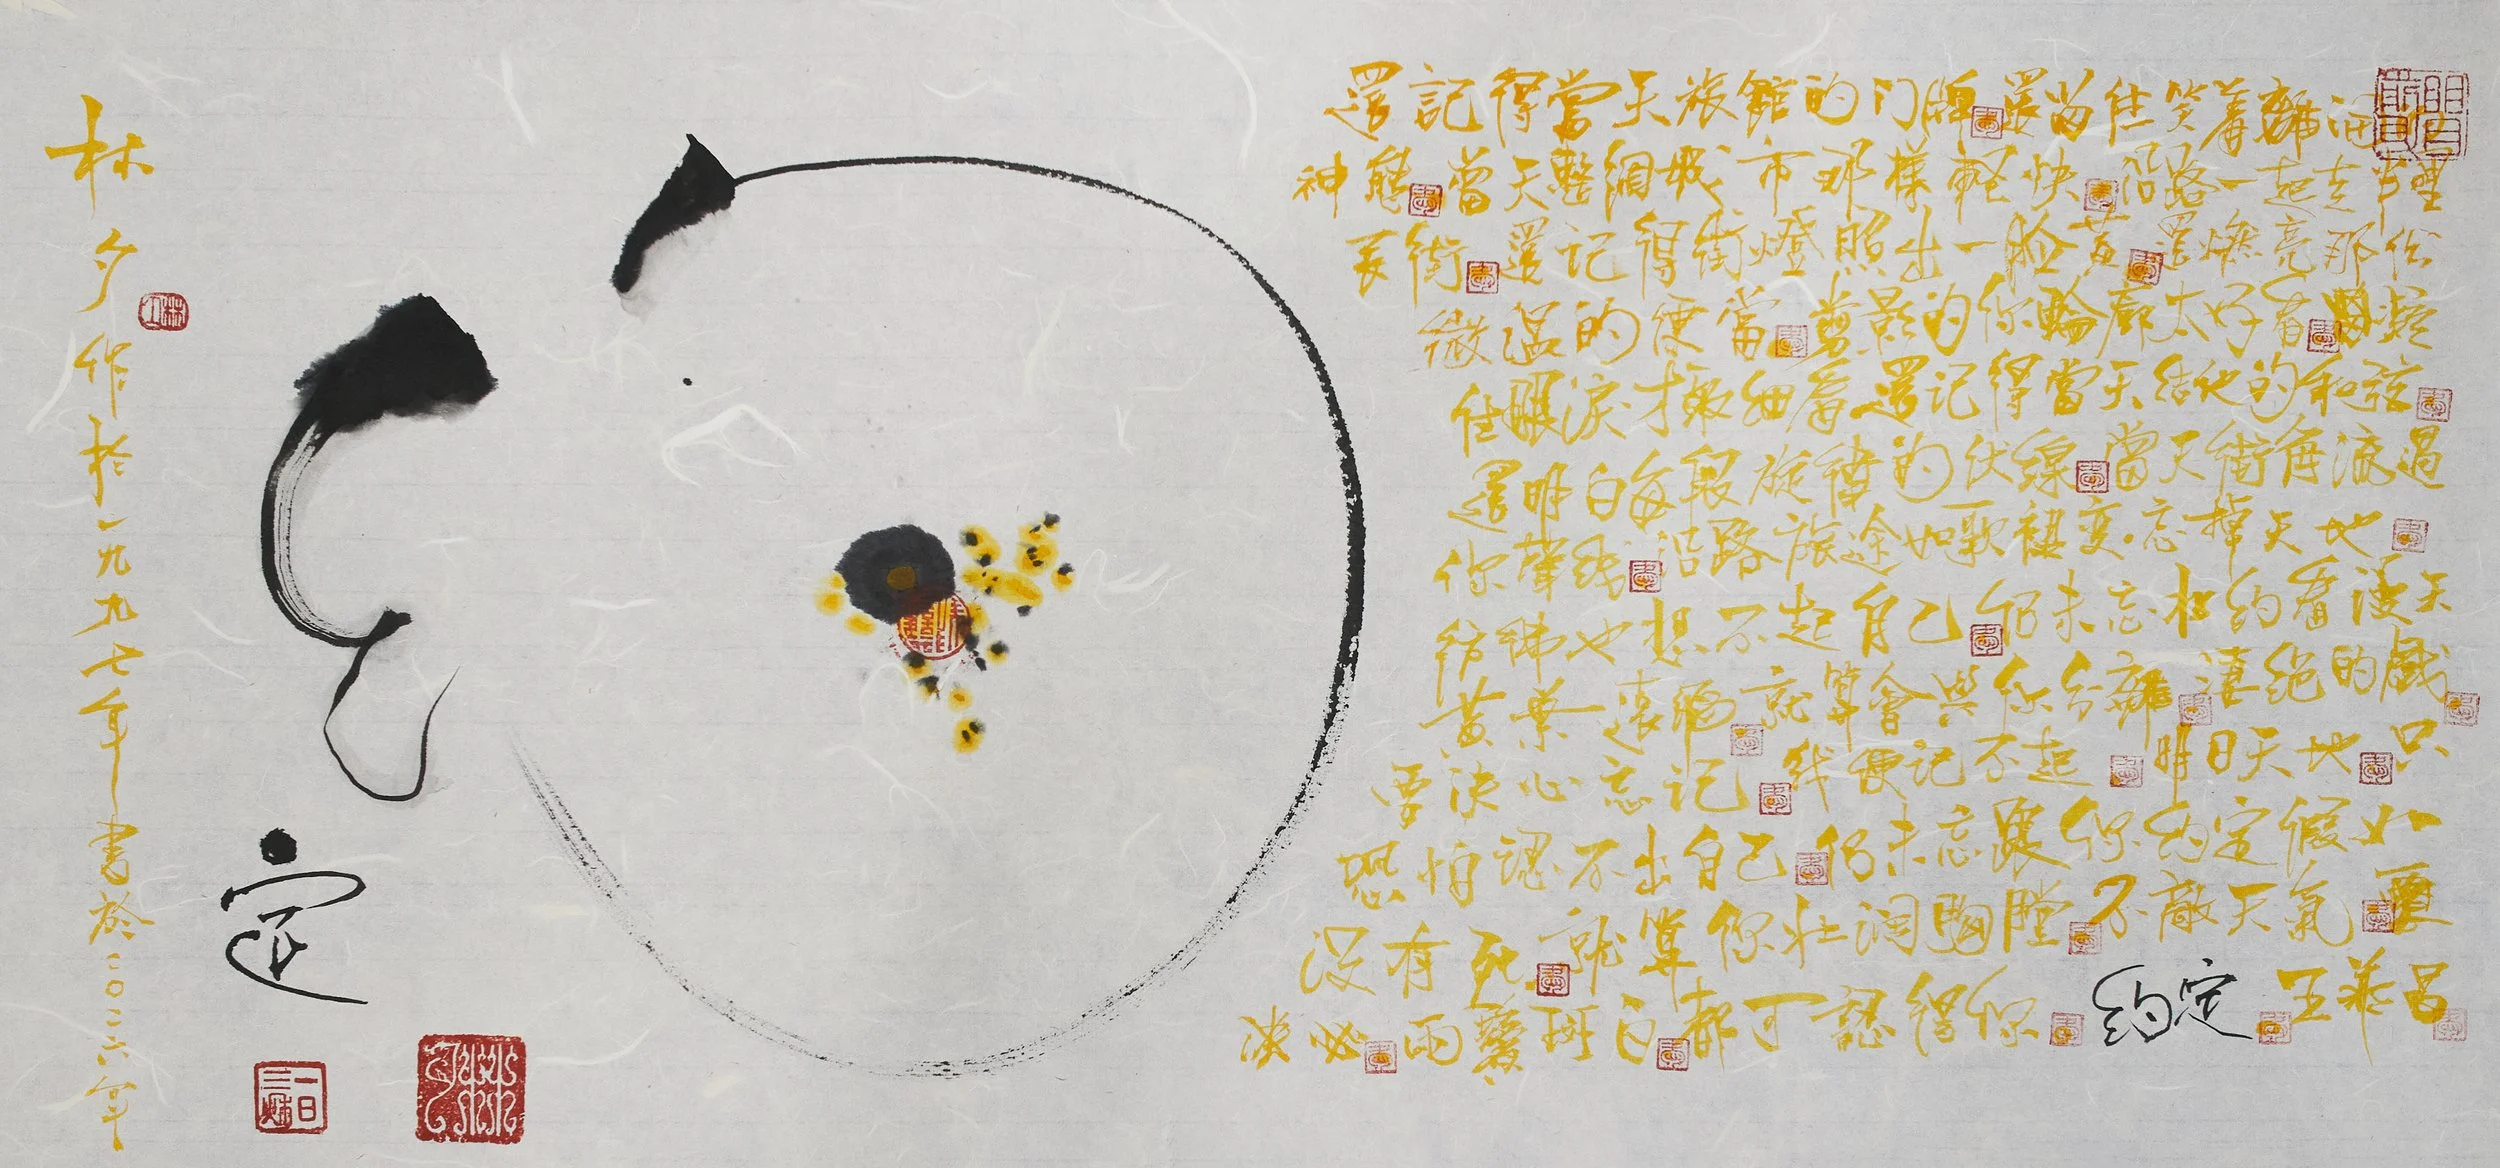 還記得當天旅館的门牌還留住笑著離開的
神態當天整個城市那樣輕快沿路一起走半哩
長街還记得街燈照出一臉黃還燃亮那份
微溫的便當剪影的你輪廓太好看凝
住眼淚才敢細看還记得當天结他的和弦
還明白每段旋律的伏線當天街角流過
你聲线沿路旅途如歌褪变忘掉天地
彷彿也想不起自己仍未忘相約看漫天
黃葉遠飄就算會與你分離淒絕的戲
要決心忘记我便记不起明日天地只
恐怕認不出自己仍未忘跟你約定假如
沒有死就算你壯濶胸膛不敵天氣要
兩鬢斑白都可認得你 約定 王菲
定
林夕作於一九九七年書於二〇二六年